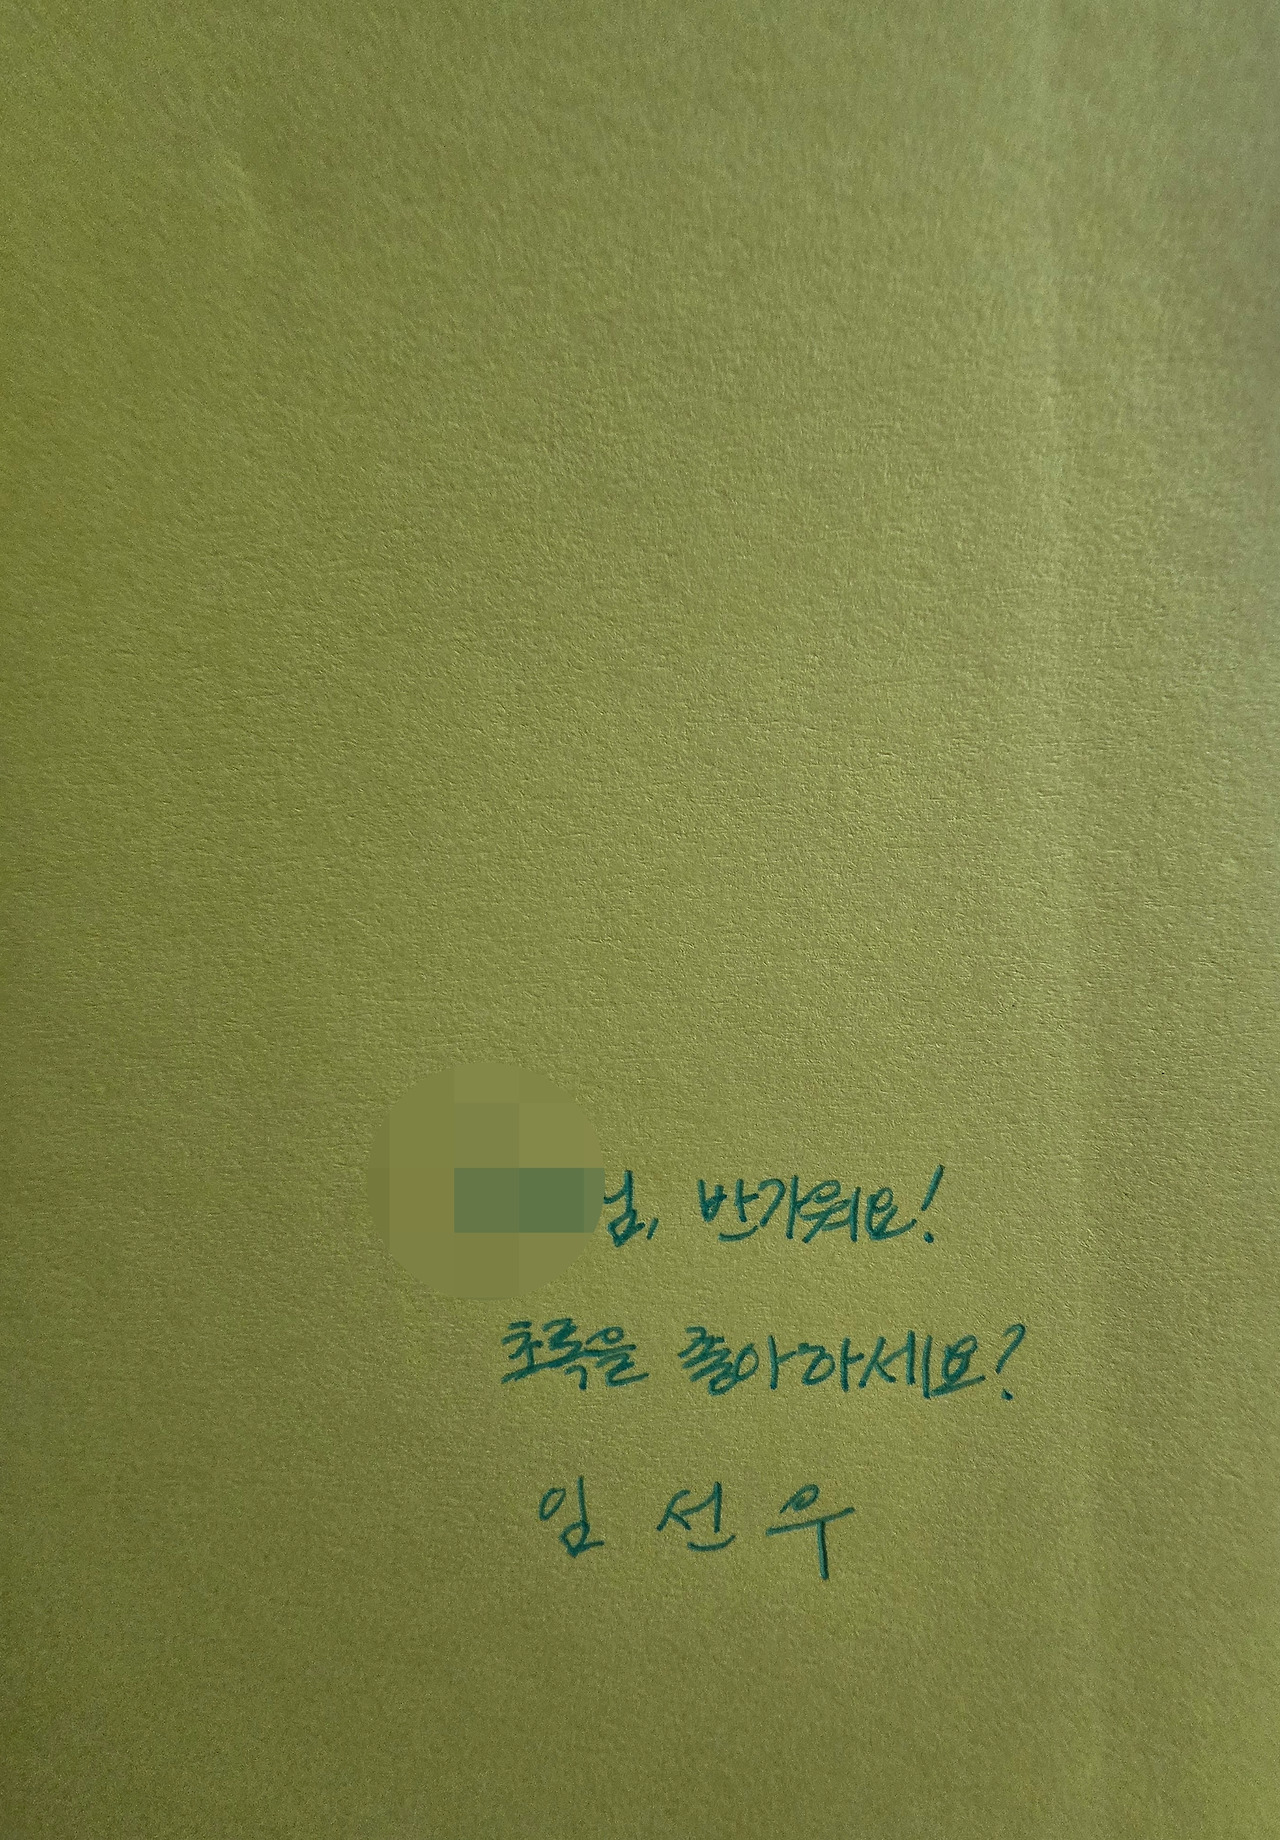 님, 반가워요!
초록을 좋아하세요?
임 선 우